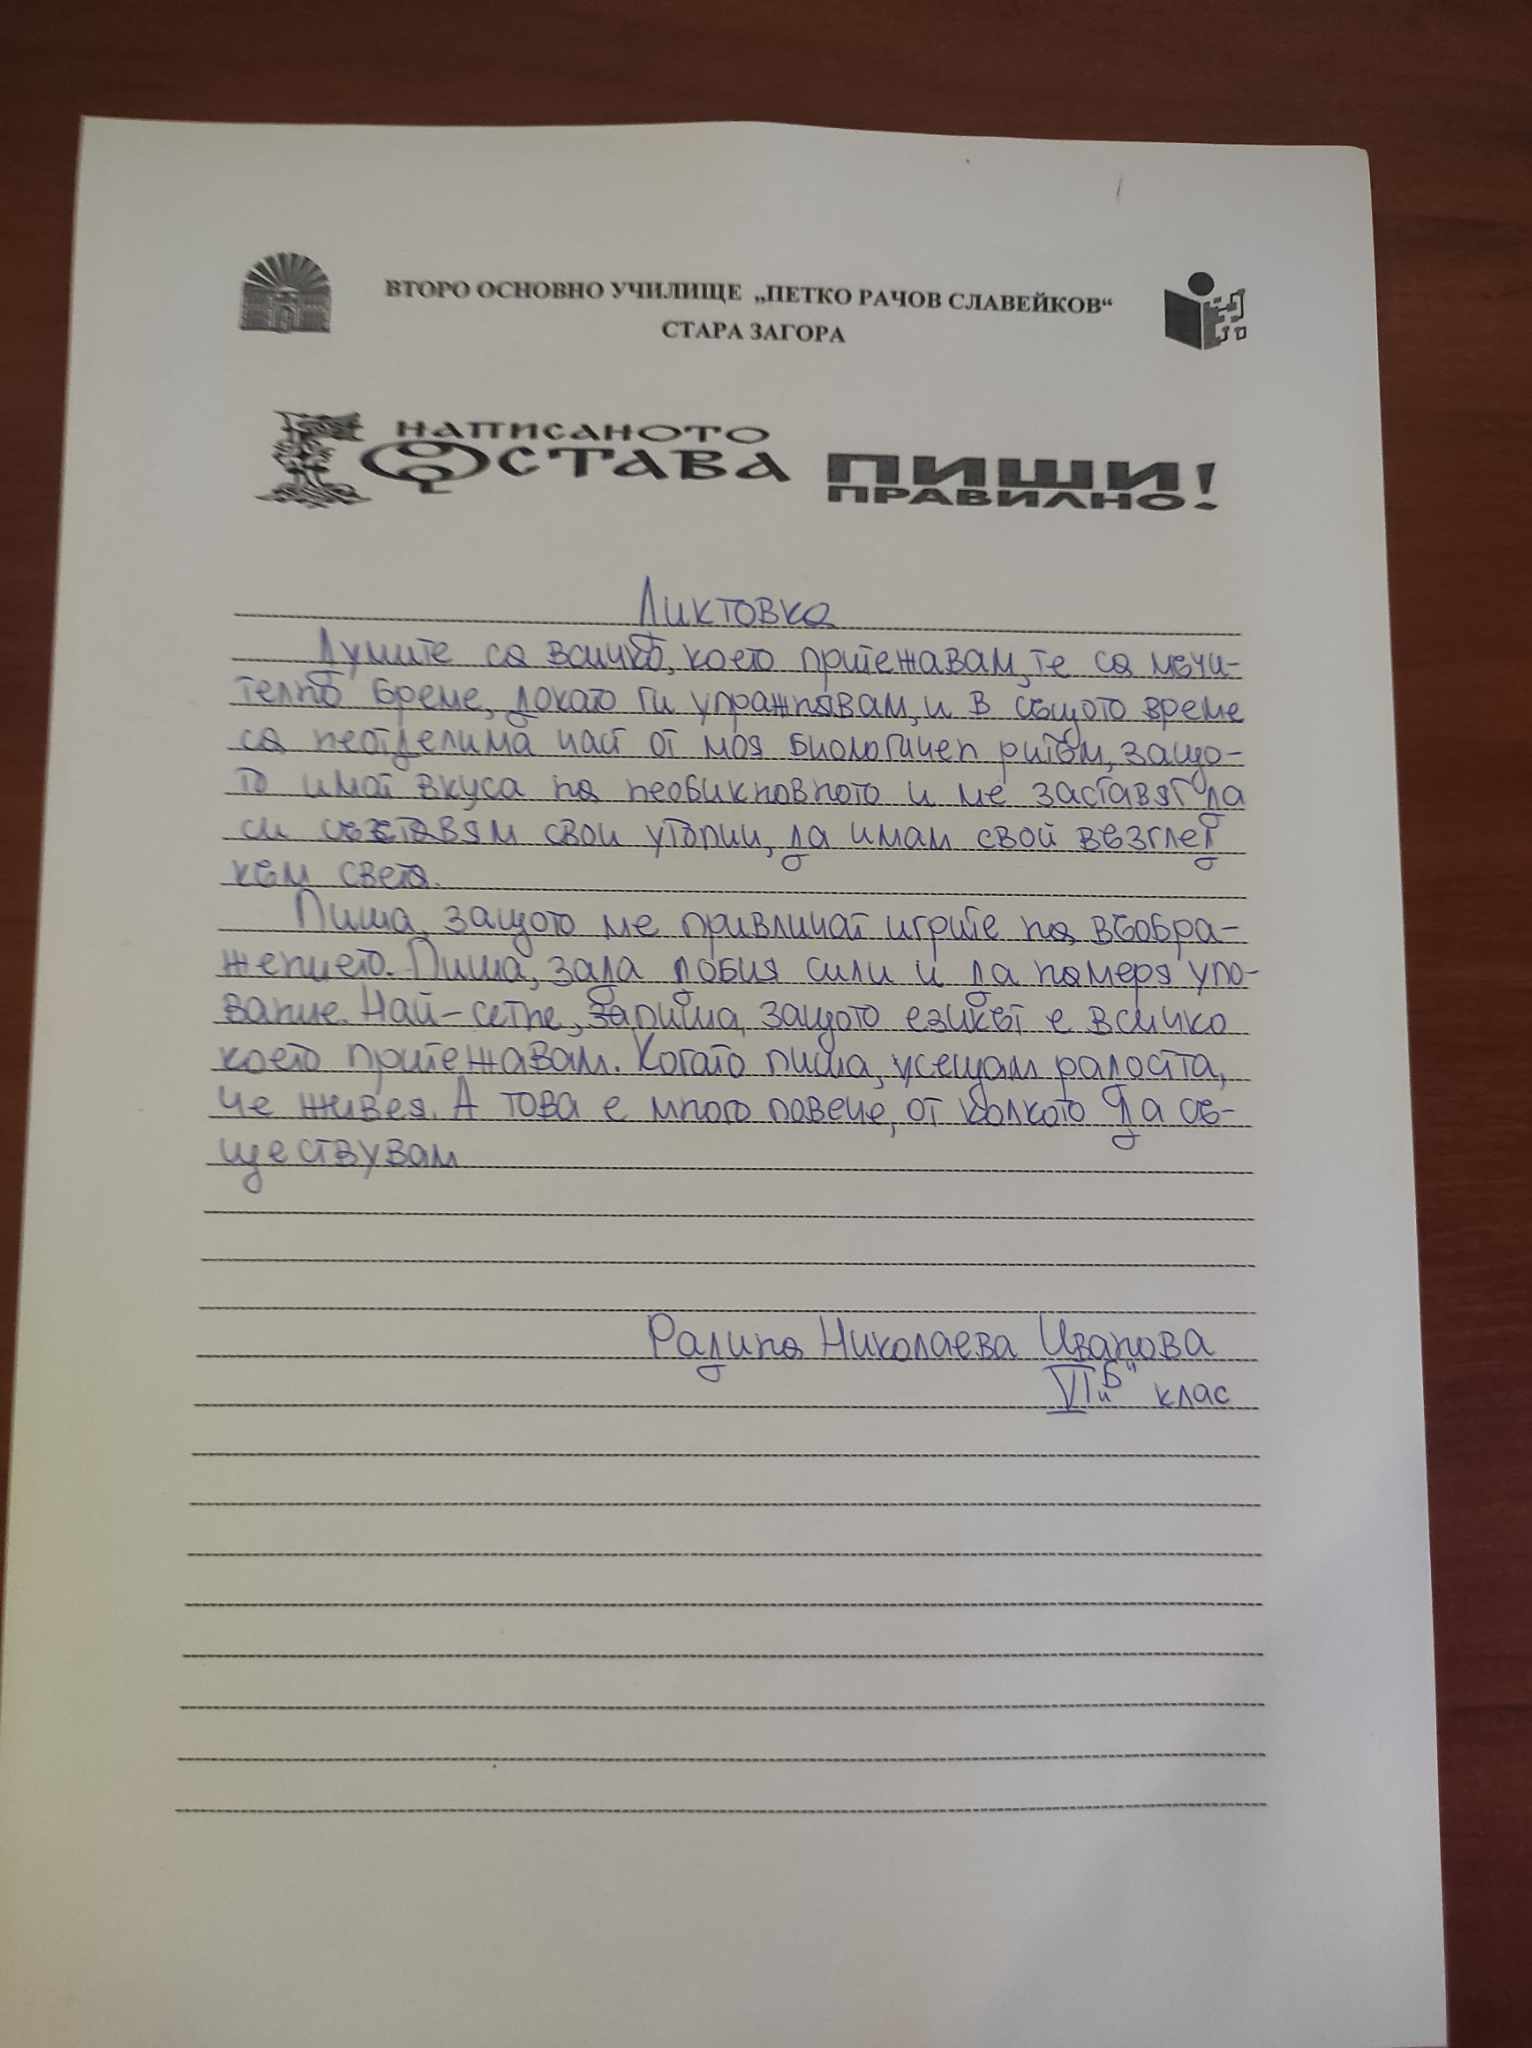 ВТОРО ОСНОВНО УЧИЛИЩЕ „ПЕТКО РАЧОВ СЛАВЕЙКОВ“
СТАРА ЗАГОРА
НАПИСАНОТО
ОСТАВА ПИШИ
ПРАВИЛНО!
Диктовка
Думите са всичко, което притежавам, те са мъчи-
телно бреме, докато ги упражнявам, и в същото време
са неотделима част от моя биологичен ритъм, защо-
то имат вкуса на необикновеното и ме заставят да
си съставям свои утопии, да имам свой възглед
към света.
Пиша, защото ме привличат игрите на въобра-
жението. Пиша, зада добия сили и да намеря упо-
вание. Най-сетне, запиша, защото езикът е всичко
което притежавам. Когато пиша, усещам радостта,
че живея. А това е много повече, от колкото да съ-
ществувам
Радина Николаева Иванова
VI „Б“ клас